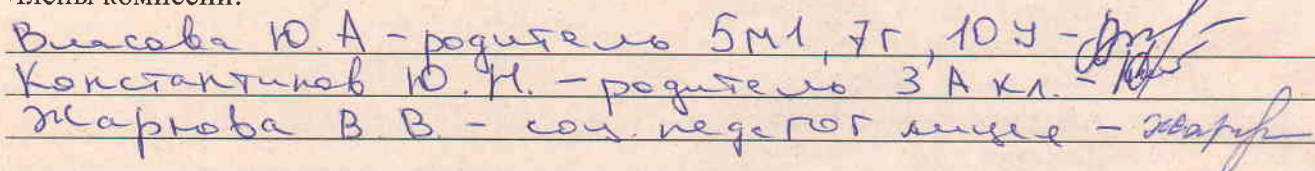 Члены комиссии:
Власова Ю. А - родитель 5М1, 7г, 10У -
Константинов Ю. Н. - родитель 3 А кл. -
Жарнова В. В. - соц. педагог лицея -